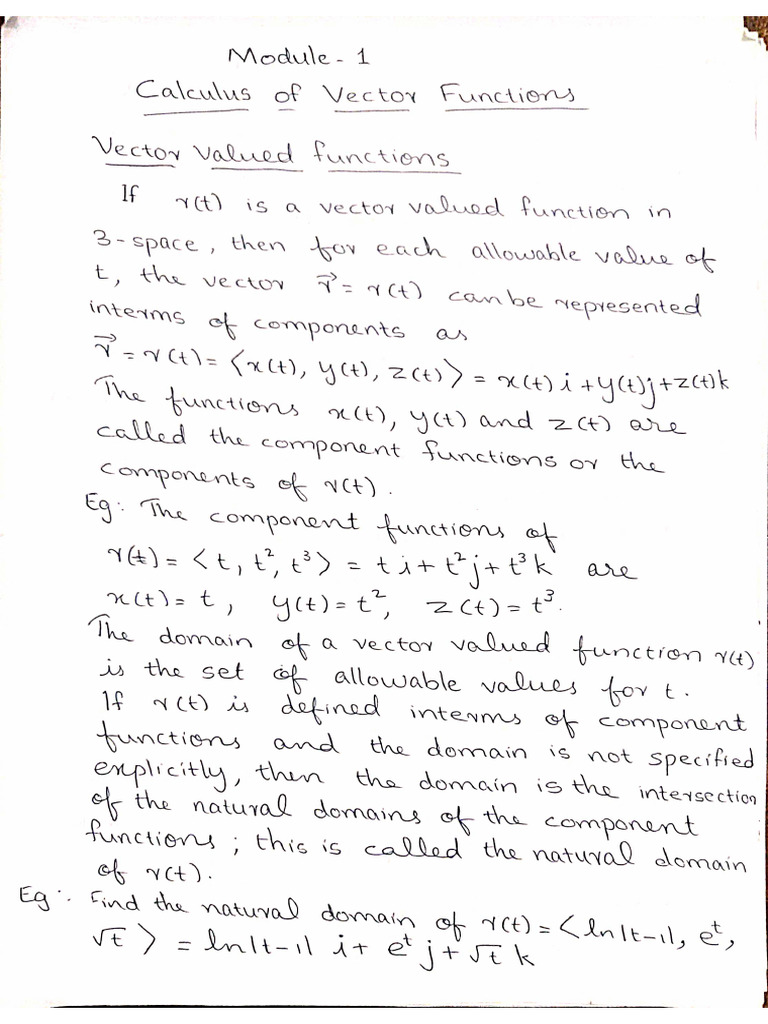 Module - 1
Calculus of Vector Functions
Vector valued functions
If r(t) is a vector valued function in
3-space, then for each allowable value of
t, the vector r⃗ = r(t) can be represented
interms of components as
r⃗ = r(t) = ⟨x(t), y(t), z(t)⟩ = x(t) i + y(t) j + z(t) k
The functions x(t), y(t) and z(t) are
called the component functions or the
components of r(t).
Eg: The component functions of
r(t) = <t, t², t³> = t i + t² j + t³ k are
x(t) = t, y(t) = t², z(t) = t³.
The domain of a vector valued function r(t)
is the set of allowable values for t.
If r(t) is defined interms of component
functions and the domain is not specified
explicitly, then the domain is the intersection
of the natural domains of the component
functions; this is called the natural domain
of r(t).
Eg:. Find the natural domain of r(t) = <ln|t-1|, e^t,
√t > = ln|t-1| i + e^t j + √t k